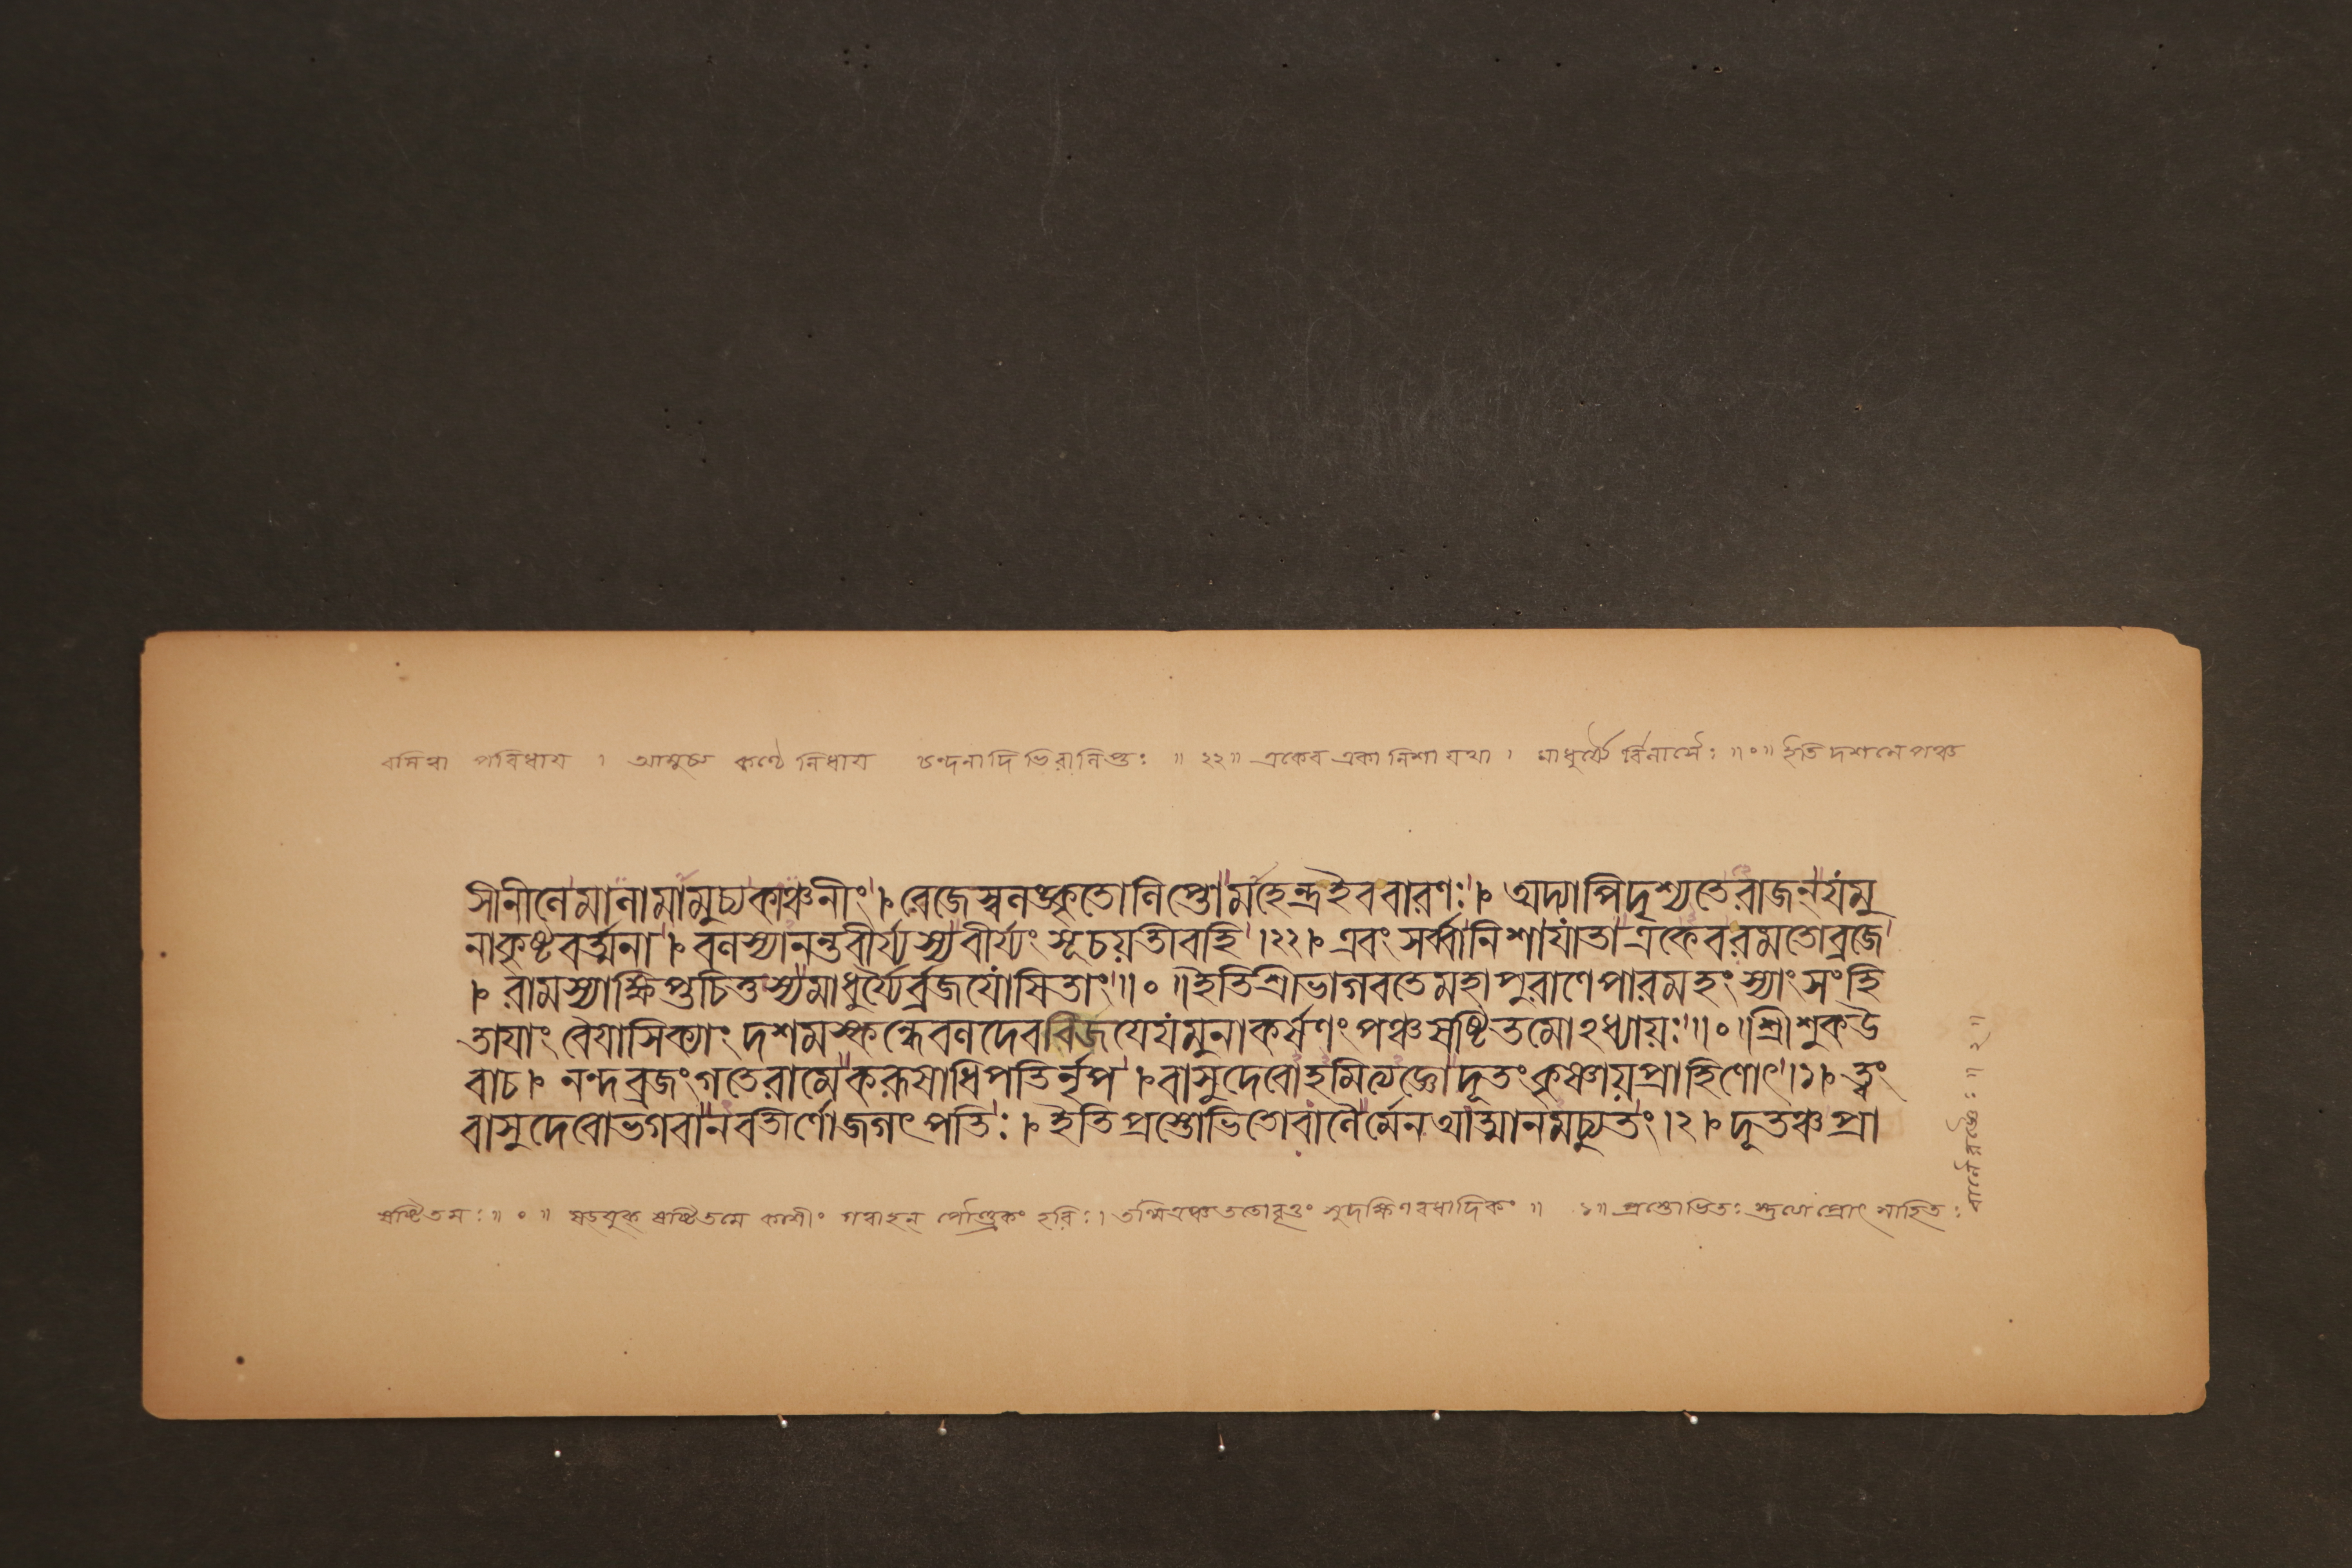 বসিত্বা পরিধায । আমুচ্য কণ্ঠে নিধায চন্দনাদিভিরালিপ্তঃ ॥ ২২॥ একেব একা নিশা যথা । মাধুর্য্যৈ র্বিলাসৈঃ ॥॰॥ ইতি দশমে পঞ্চ
সীনীলেমালামামুচ্যকাঞ্চনীং । রেজেস্বলঙ্কৃতোলিপ্তোমহেন্দ্রইববারণঃ । অদ্যাপিদৃশ্যতেরাজন্‌যমু
নাকৃষ্টবর্ত্মনা । বলস্যানন্তবীর্য্যস্যবীর্য্যং সূচয়তীবহি ।২২। এবং সর্ব্বানিশাযাতাএকেবরমতোব্রজে
। রামস্যাক্ষিপ্তচিত্তস্যমাধুর্য্যৈর্ব্রজযোষিতাং ॥॰ ॥ইতিশ্রীভাগবতেমহাপুরাণেপারমহংস্যাংসংহি
তাযাং বৈযাসিক্যাং দশমস্কন্ধেবলদেববিজযেযমুনাকর্ষণং পঞ্চষষ্টিতমোঽধ্যায়ঃ ॥॰ ॥শ্রীশুকউ
বাচ । নন্দব্রজংগতেরামেকরূষাধিপতির্নৃপ । বাসুদেবোহমিত্যজ্ঞোদূতংকৃষ্ণায়প্রাহিণোৎ ।১। ত্বং
বাসুদেবোভগবানবতীর্ণোজগৎপতিঃ । ইতিপ্রস্তোভিতোবালৈর্মেনআত্মানমচ্যুতং ।২। দূতঞ্চপ্রা
ষষ্টিতমঃ॥ ॰ ॥ ষড্যুক্ ষষ্টিতমে কাশীং গত্বাহন পৌণ্ড্রকং হরিঃ।
সুদক্ষিণবধাদিকং ॥ ১॥ প্রস্তোভিতঃ প্রোৎসাহিতঃ
বালৈরজ্ঞৈঃ ॥ ২॥